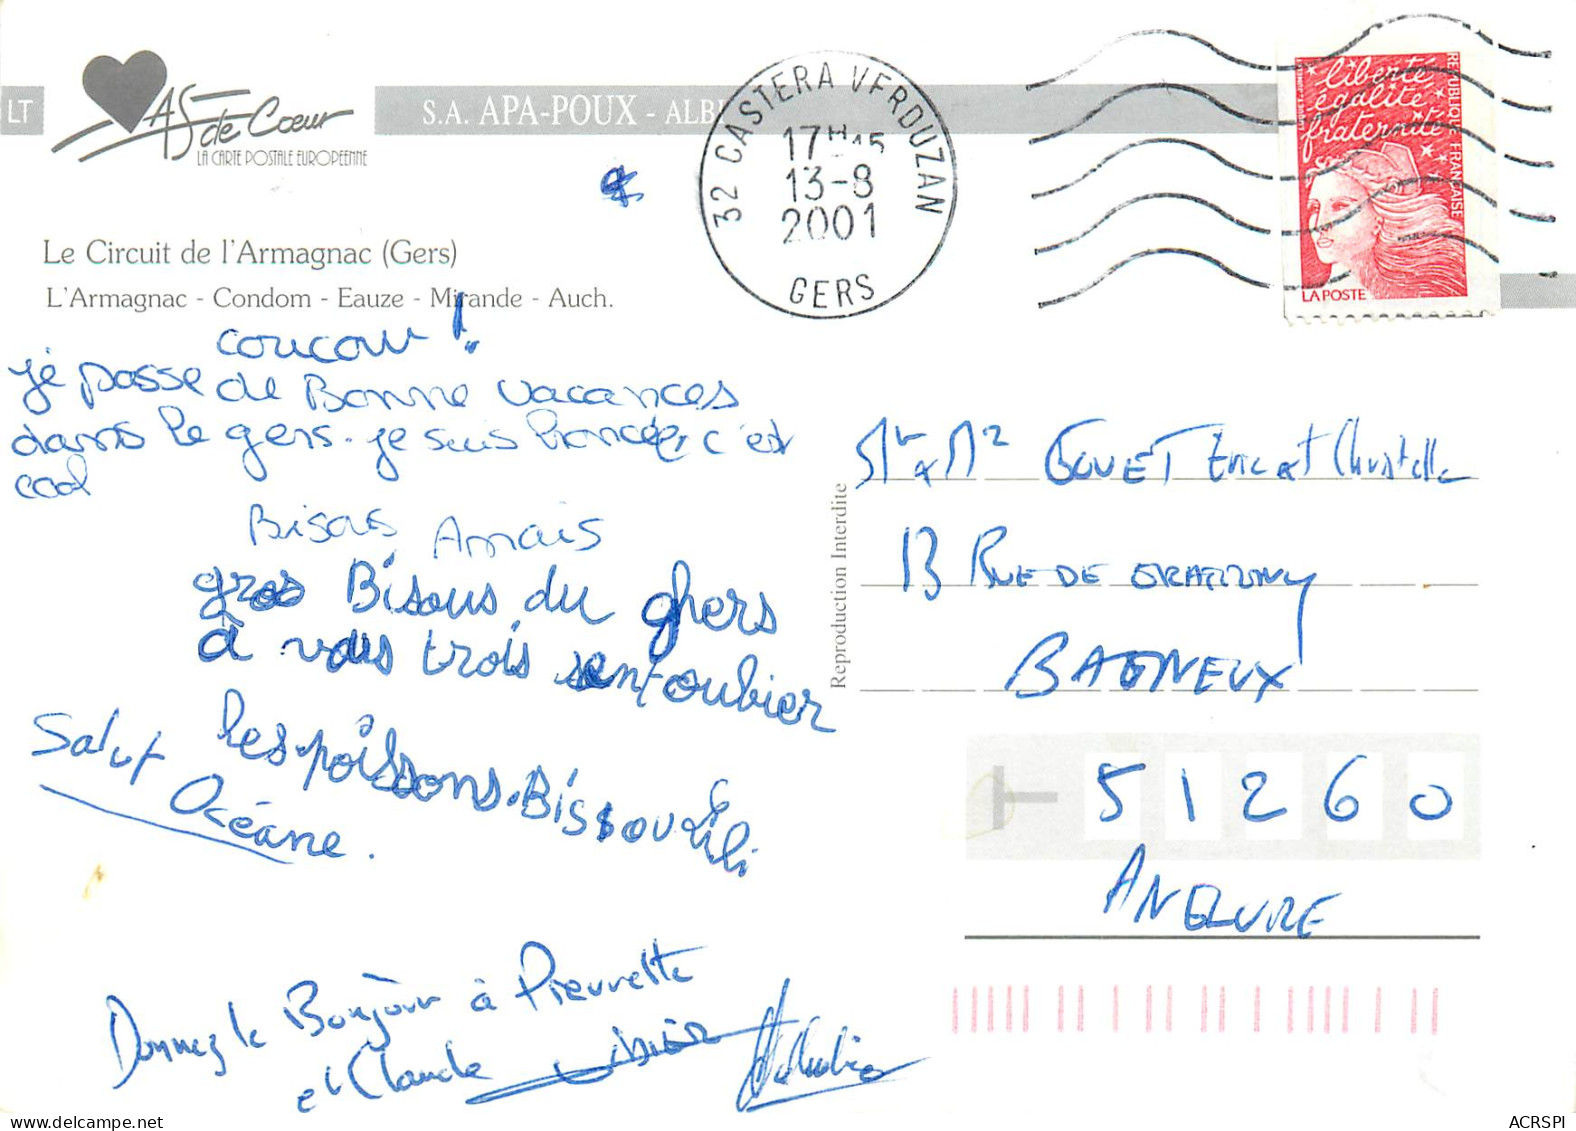 LT
AS de Cœur
LA CARTE POSTALE EUROPEENNE
S.A. APA-POUX - ALBI
32 CASTERA VERDUZAN
17H15
13-8
2001
GERS
liberté
égalité
fraternité
REPUBLIQUE FRANÇAISE
LA POSTE
Le Circuit de l'Armagnac (Gers)
L'Armagnac - Condom - Eauze - Mirande - Auch.
coucou !
je passe de Bonne vacances
dans le gers. je suis broncée, c'est
cool
Bisous Anaïs
gros Bisous du ghers
à vous trois sentoubier
les poissons. Bissou Lili
Salut
Océane.
Donnez le Bonjour à Pierrette
et Claude
Reproduction Interdite
Mr & Me GOUET Eric et Christelle
13 RUE DE
BAGNEUX
51260
ANGLURE
ACRSPI